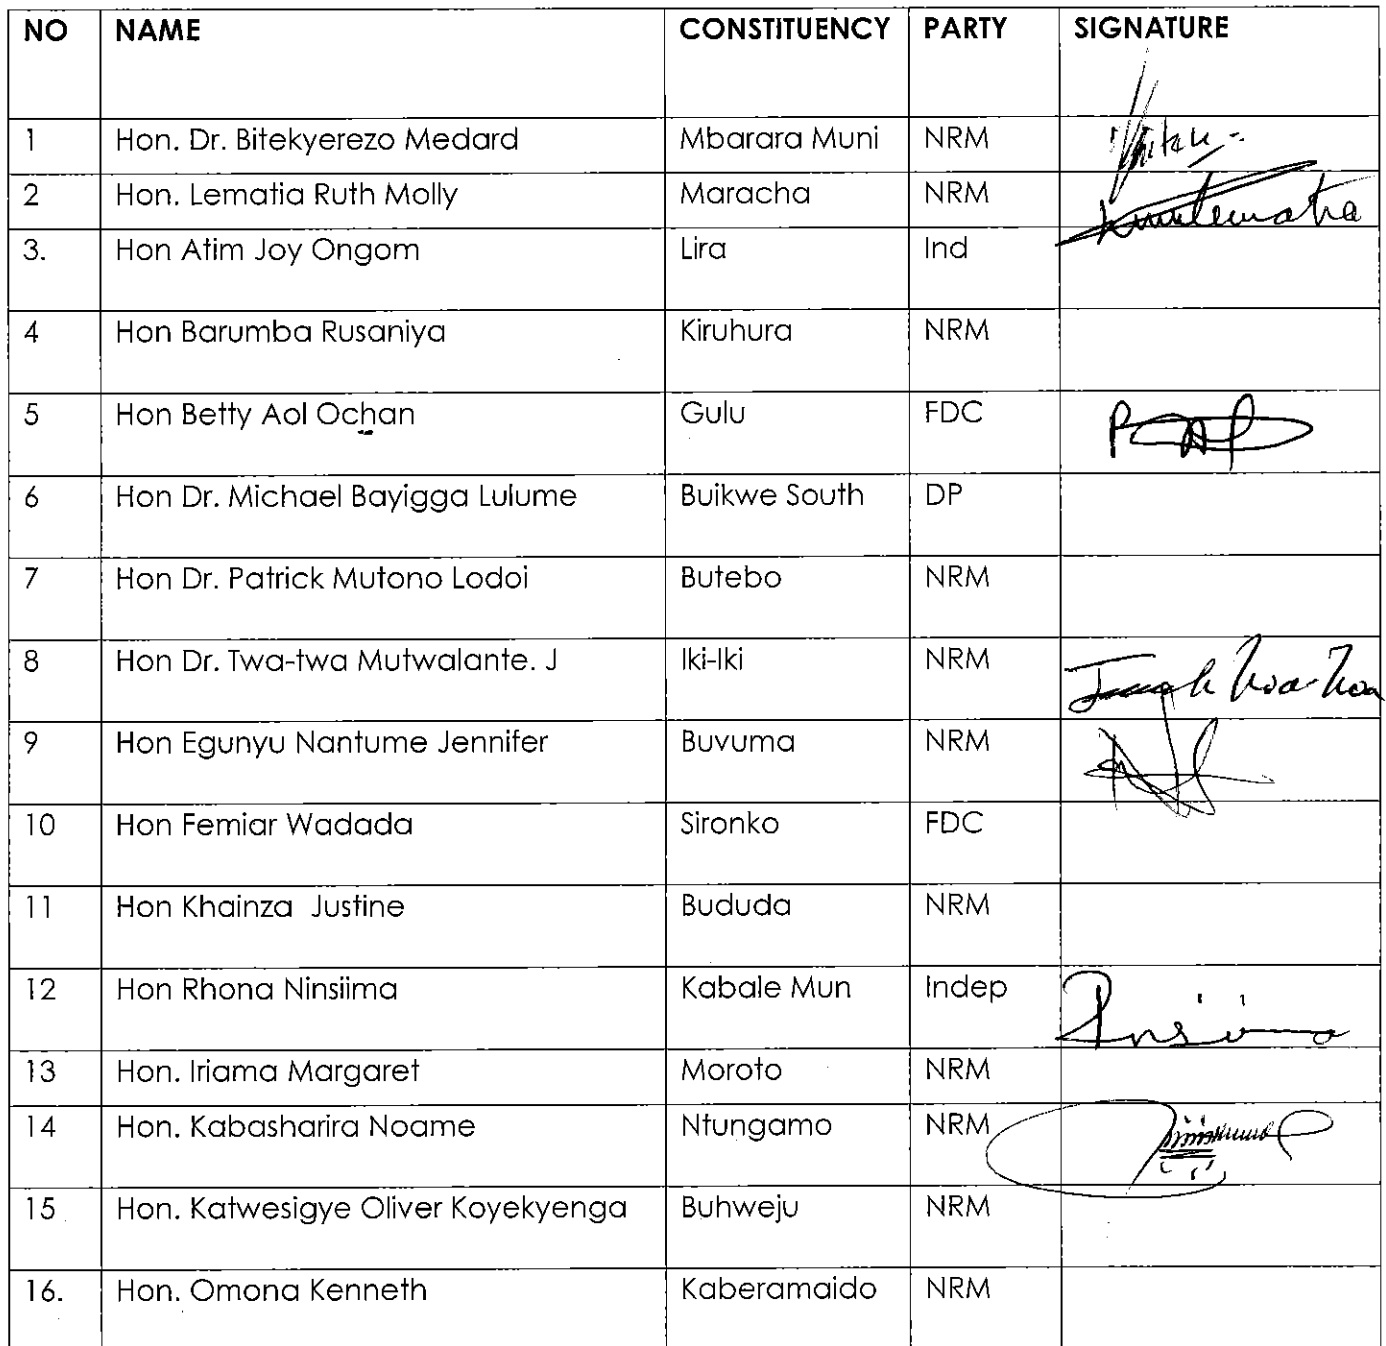 NO NAME CONSTITUENCY PARTY SIGNATURE
1 Hon. Dr. Bitekyerezo Medard Mbarara Muni NRM
2 Hon. Lematia Ruth Molly Maracha NRM
3. Hon Atim Joy Ongom Lira Ind
4 Hon Barumba Rusaniya Kiruhura NRM
5 Hon Betty Aol Ochan Gulu FDC
6 Hon Dr. Michael Bayigga Lulume Buikwe South DP
7 Hon Dr. Patrick Mutono Lodoi Butebo NRM
8 Hon Dr. Twa-twa Mutwalante. J Iki-Iki NRM
9 Hon Egunyu Nantume Jennifer Buvuma NRM
10 Hon Femiar Wadada Sironko FDC
11 Hon Khainza Justine Bududa NRM
12 Hon Rhona Ninsiima Kabale Mun Indep
13 Hon. Iriama Margaret Moroto NRM
14 Hon. Kabasharira Noame Ntungamo NRM
15 Hon. Katwesigye Oliver Koyekyenga Buhweju NRM
16. Hon. Omona Kenneth Kaberamaido NRM